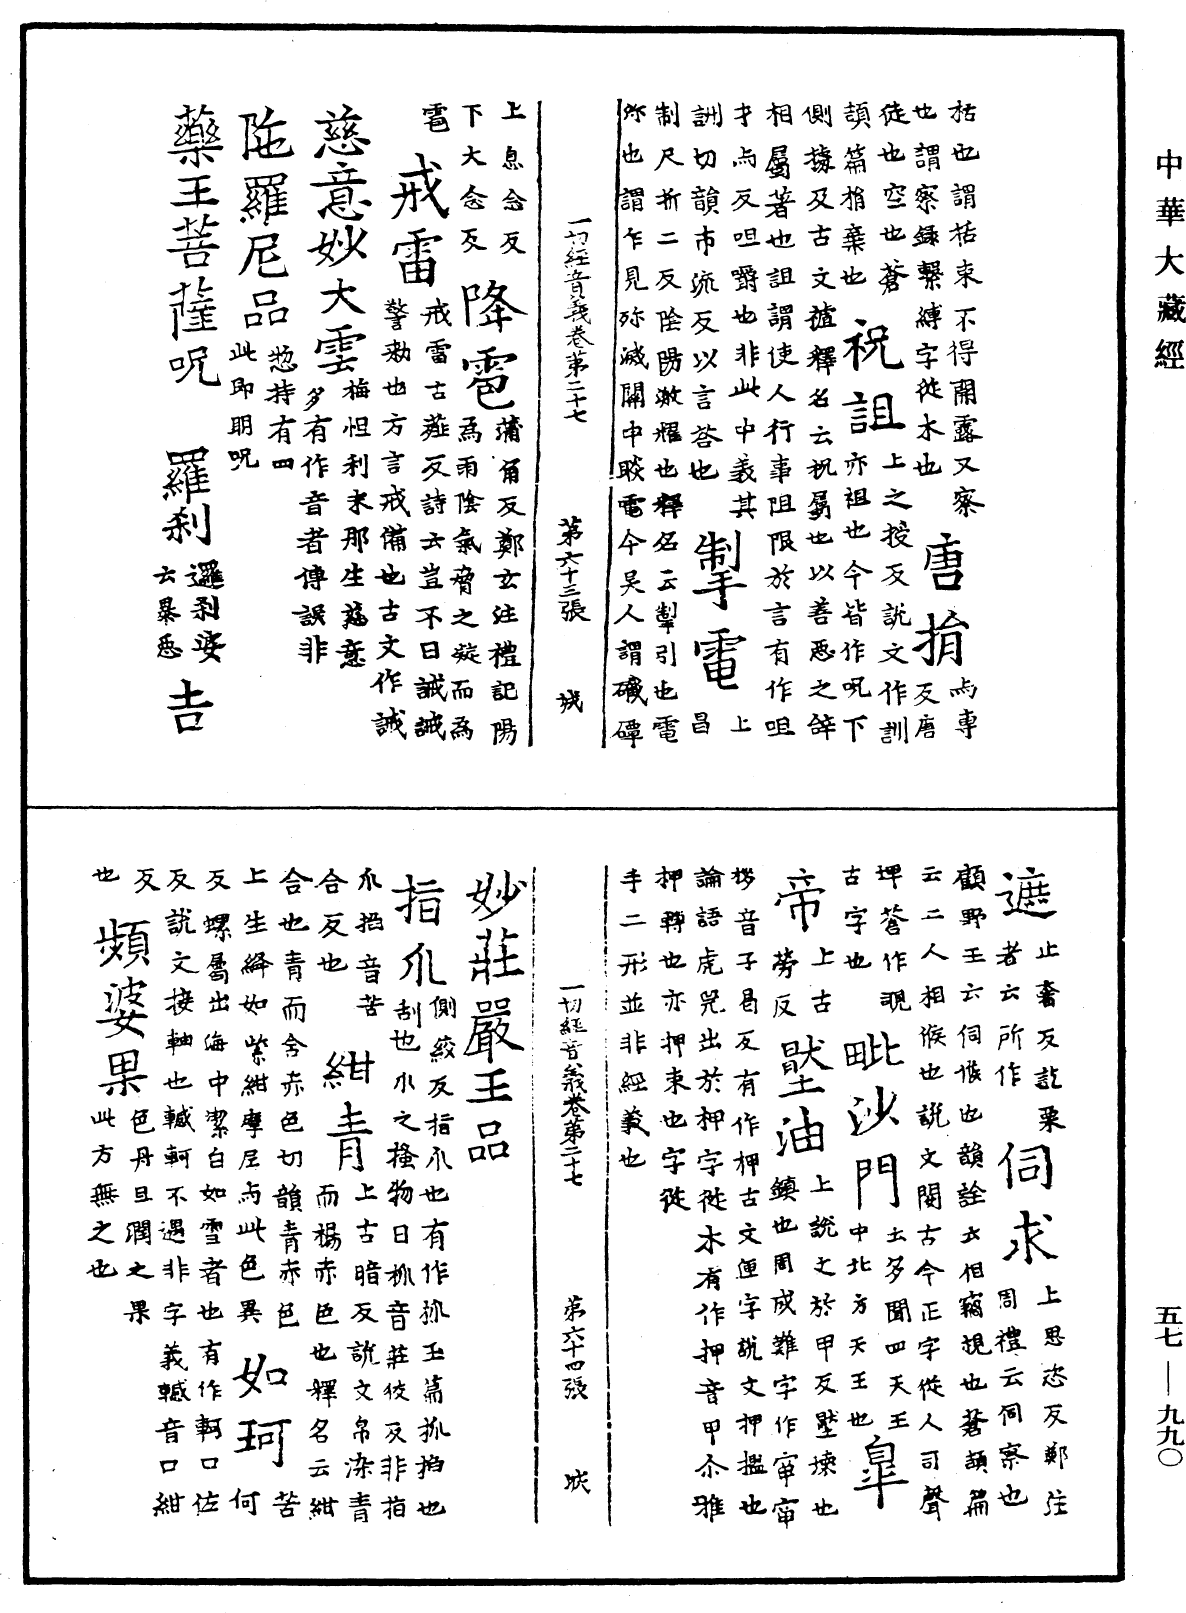 中華大藏經
枯也謂枯束不得開露又察
也謂察録繫縛字從木也
唐捐
上徒也空也蒼頡篇捐棄也
祝詛
側據反古文禣釋名云祝屬也以善惡之辭
相屬著也詛謂使人行事阻限於言有作咀
才与反咀嚼也非此中義其上
詶切韻市流反以言荅也
掣電
昌制尺折二反陰陽激耀也釋名云掣引也電
殄也謂乍見殄滅關中晱電今吴人謂礣磹
一切經音義卷第二十七 第六十三張
上息念反下大念反
降雹
蒲角反鄭玄注禮記陽
為雨陰氣脅之凝而為雹
戒雷
戒雷古薤反詩云豈不日誡誡
警勑也方言戒備也古文作誡
慈意妙大雲
梅怛利末那生慈意
多有作音者傳誤非
陁羅尼品
惣持有四
此即明呪
藥王菩薩呪
羅刹
邏刹娑
云暴惡
吉
遮
止奢反訖栗
者云所作
伺求
上思恣反鄭注
周禮云伺察也
顧野王云伺候也韻詮云相竊視也蒼頡篇
云二人相候也説文闕古今正字從人司聲
埤蒼作覗
古字也
毗沙門
土多聞四天王
中北方天王也
皐帝
上古
勞反
壓油
上説文於甲反壓壞也
鎮也周成難字作窜窜
拶音子曷反有作押古文匣字説文押擸也
論語虎兕出於押字從木有作押音甲尒雅
押轉也亦押束也字從
手二形並非經義也
一切經音義卷第二十七 第六十四張
妙莊嚴王品
指爪
側絞反指爪也有作抓玉篇抓掐也
刮也爪之搔物曰抓音莊狡反非指
爪掐音苦
合反也
紺青
上古暗反説文帛染青
而楊赤色也釋名云紺
含也青而含赤色切韻青赤色苦
上生絳如紫紺摩尼与此色異
如珂
何
反螺屬出海中潔白如雪者也有作軻口佐
反説文接軸也轗軻不遇非字義轗音口紺
反
也
頻婆果
色丹且潤之果
此方無之也
五七—九九〇